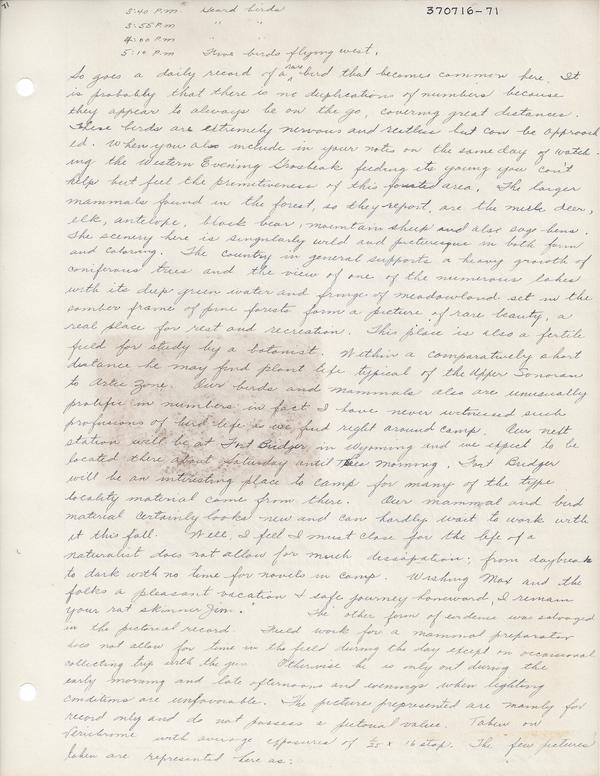 71
3:40 P.M. Heard birds
370716-71
3:55 P.M. " "
4:00 P.M. " "
5:10 P.M. Five birds flying west.
So goes a daily record of a rare bird that becomes common here. It
is probably that there is no duplications of numbers because
they appear to always be on the go, covering great distances.
These birds are extremely nervous and restless but can be approach
ed. When you also include in your notes on the same day of watch-
ing the Western Evening Grosbeak feeding its young you can't
help but feel the primitiveness of this forested area. The larger
mammals found in the forest, so they report, are the mule deer,
elk, antelope, black bear, mountain sheep and also sage hens.
The scenery here is singularly wild and picturesque in both form
and coloring. The country in general supports a heavy growth of
coniferous trees and the view of one of the numerous lakes
with its deep green water and fringe of meadowland set in the
somber frame of pine forests form a picture of rare beauty, a
real place for rest and recreation. This place is also a fertile
field for study by a botanist. Within a comparatively short
distance he may find plant life typical of the Upper Sonoran
to Artic Zone. Our birds and mammals also are unusually
prolific in numbers in fact I have never witnessed such
profusions of bird life as we find right around camp. Our next
station will be at Fort Bridger in Wyoming and we expect to be
located there about Saturday until Tues morning. Fort Bridger
will be an interesting place to camp for many of the type
locality material came from there. Our mammal and bird
material certainly looks new and can hardly wait to work with
it this fall. Well, I feel I must close for the life of a
naturalist does not allow for much dissapation; from daybreak
to dark with no time for novels in camp. Wishing Max and the
folks a pleasant vacation & safe journey homeward, I remain
your rat skinner Jim." The other form of evidence was salvaged
in the pictorial record. Field work for a mammal preparator
does not allow for time in the field during the day except on occassional
collecting trip with the gun. Otherwise he is only out during the
early morning and late afternoons and evenings when lighting
conditions are unfavorable. The pictures prepresented are mainly for
record only and do not possess a pictorial value. Taken on
Verichrome with average exposures of 1/25 x 16 stop. The few pictures
taken are represented here as: